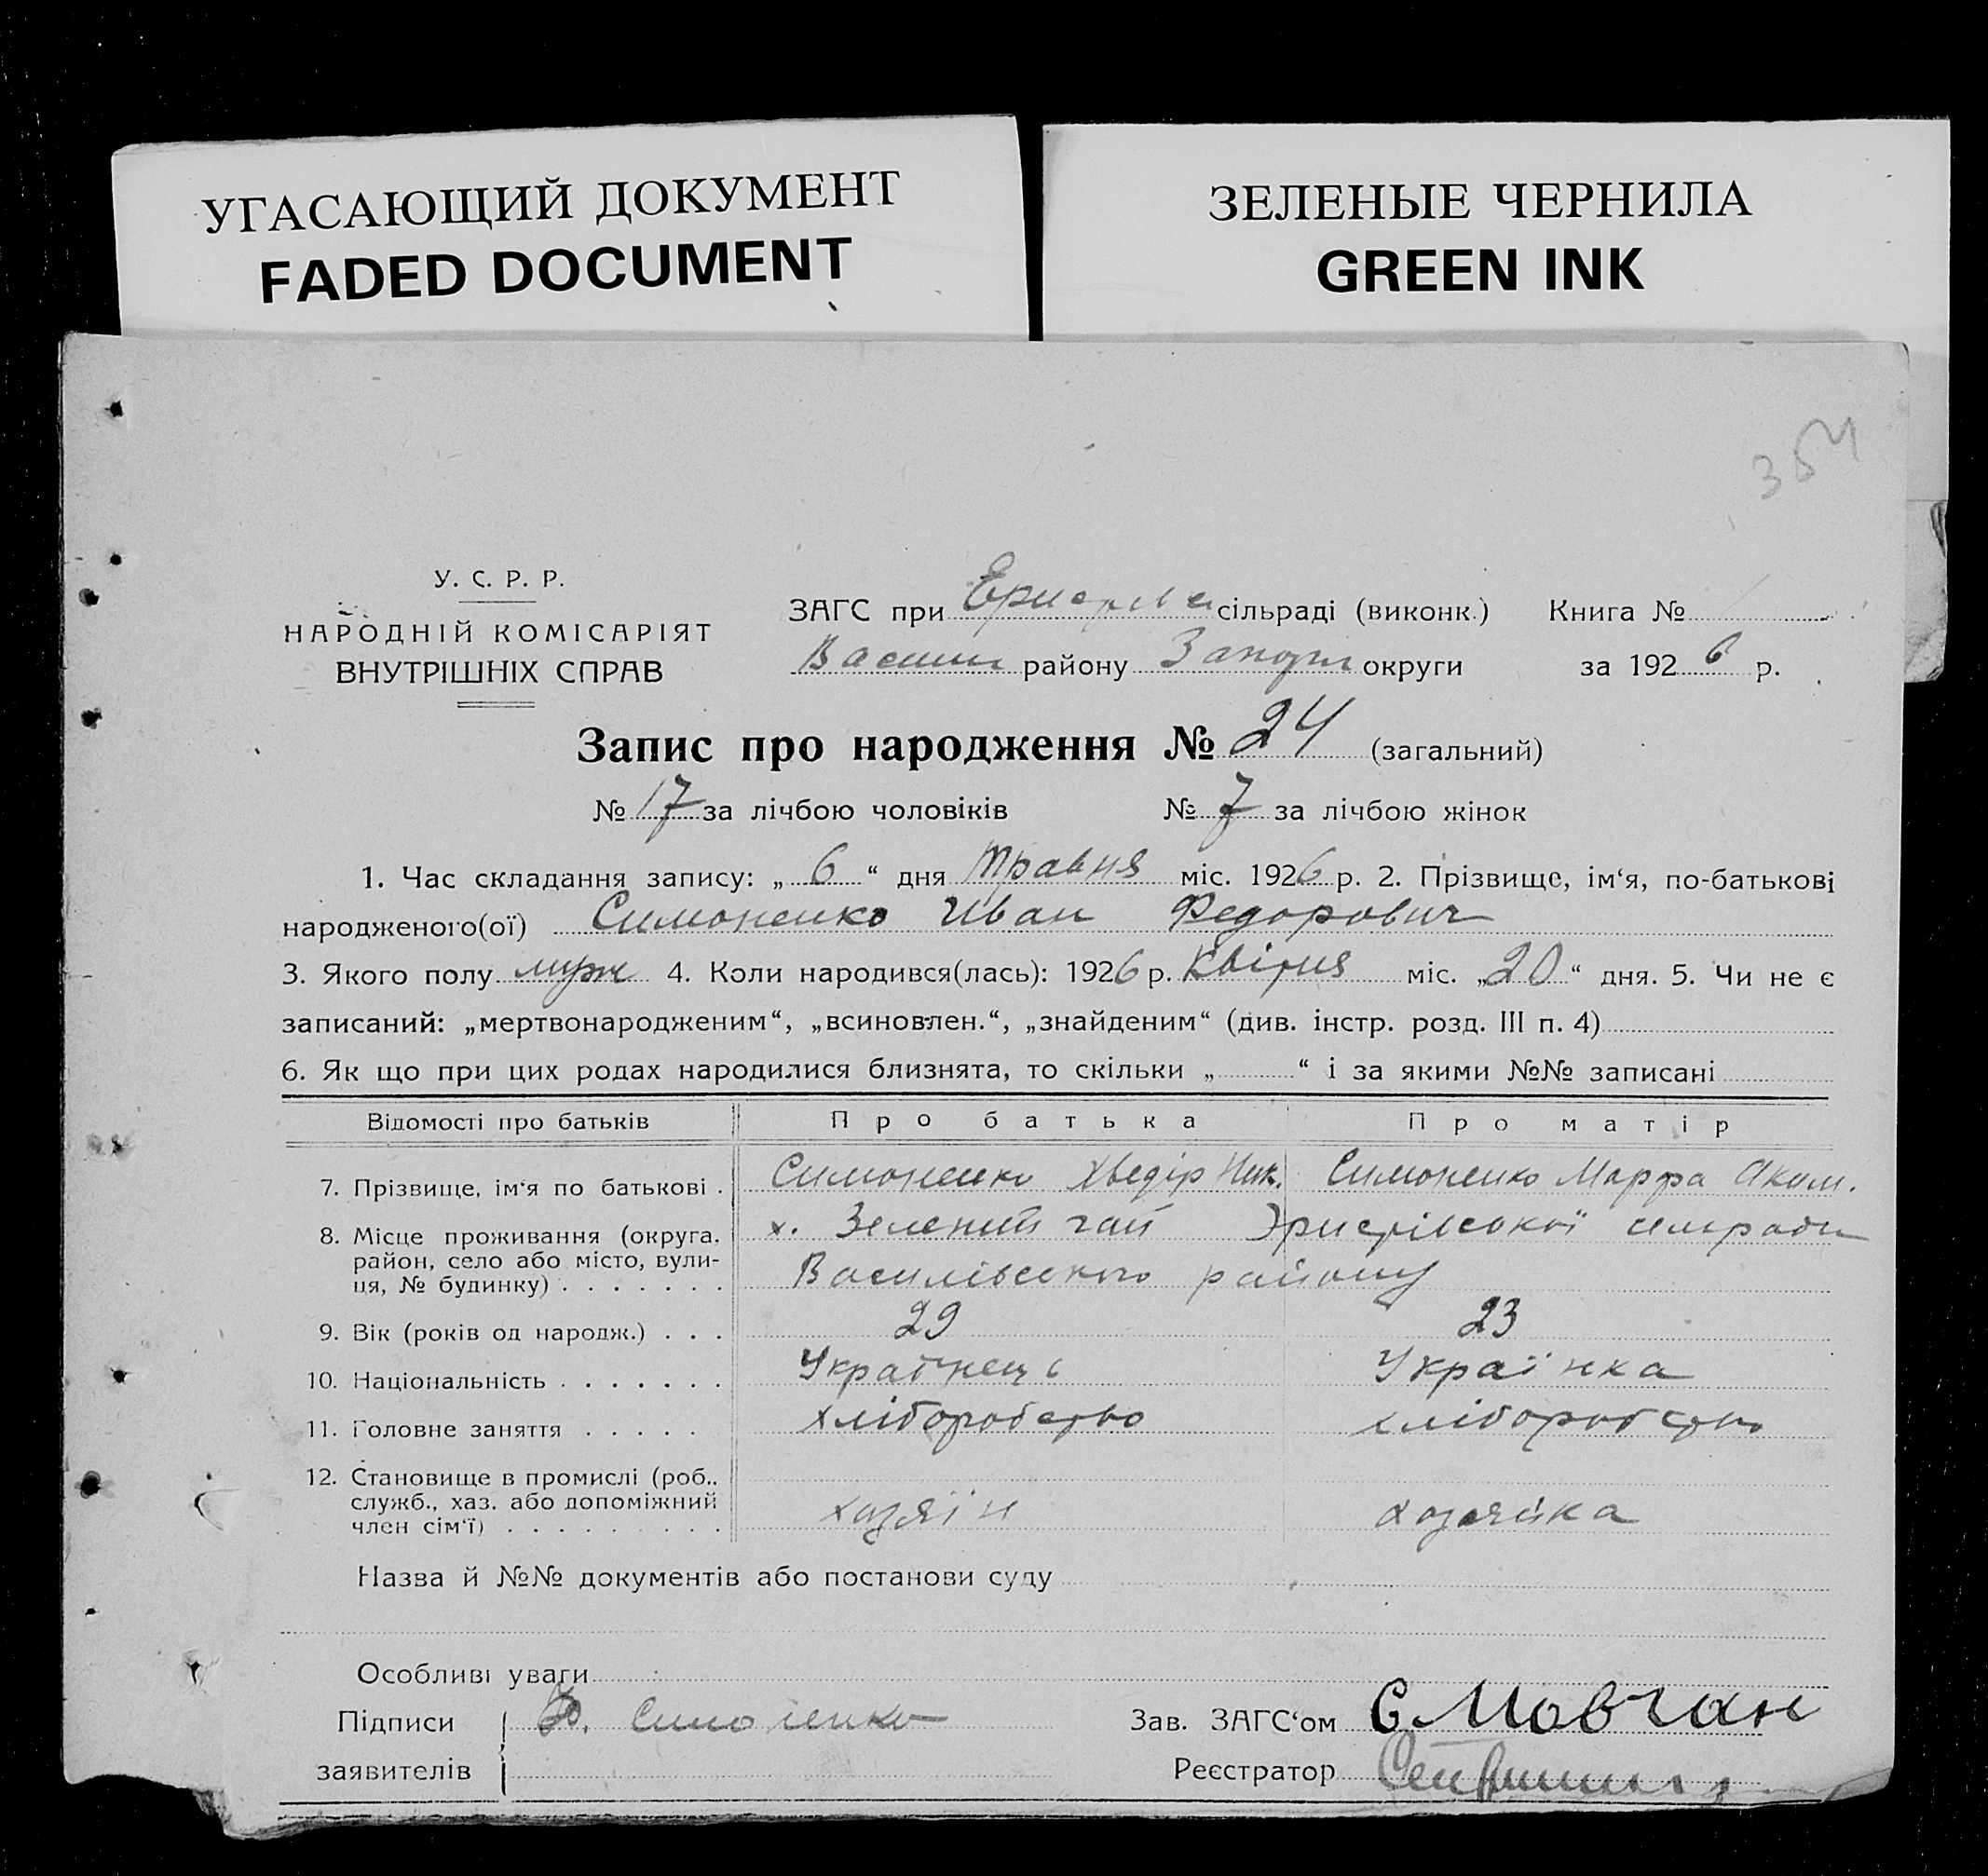 УГАСАЮЩИЙ ДОКУМЕНТ
FADED DOCUMENT
ЗЕЛЕНЫЕ ЧЕРНИЛА
GREEN INK
354
У. С. Р. Р.
НАРОДНІЙ КОМІСАРІЯТ
ВНУТРІШНІХ СПРАВ
ЗАГС при сільраді (виконк.) Книга №
Васили району Запоріж округи за 1926 р.
Запис про народження № 24 (загальний)
№ 17 за лічбою чоловіків № 7 за лічбою жінок
1. Час складання запису: „ 6 “ дня травня міс. 1926 р. 2. Прізвище, ім‘я, по-батькові
народженого(ої) Симоненко Иван Федорович
3. Якого полу муж 4. Коли народився(лась): 1926 р. Квітня міс. „20“ дня. 5. Чи не є
записаний: „мертвонародженим“, „всиновлен.“, „знайденим“ (див. інстр. розд. III п. 4)
6. Як що при цих родах народилися близнята, то скільки „ “ і за якими №№ записані
Відомості про батьків Про батька Про матір
7. Прізвище, ім‘я по батькові . Симоненко Хведір Ник. Симоненко Марфа Яким.
8. Місце проживання (округа, х. Зелений гай Эристівської сільради
район, село або місто, вули-
ця, № будинку) . . . . . . . Василівського району
9. Вік (років од народж.) . . . 29 23
10. Національність . . . . . . . Українець Українка
11. Головне заняття . . . . . хліборобство хліборобство
12. Становище в промислі (роб.,
служб., хаз. або допоміжний хазяїн хазяйка
член сім‘ї) . . . . . . . . .
Назва й №№ документів або постанови суду
Особливі уваги
Підписи Симоненко Зав. ЗАГС‘ом С Мовчан
заявителів Реєстратор